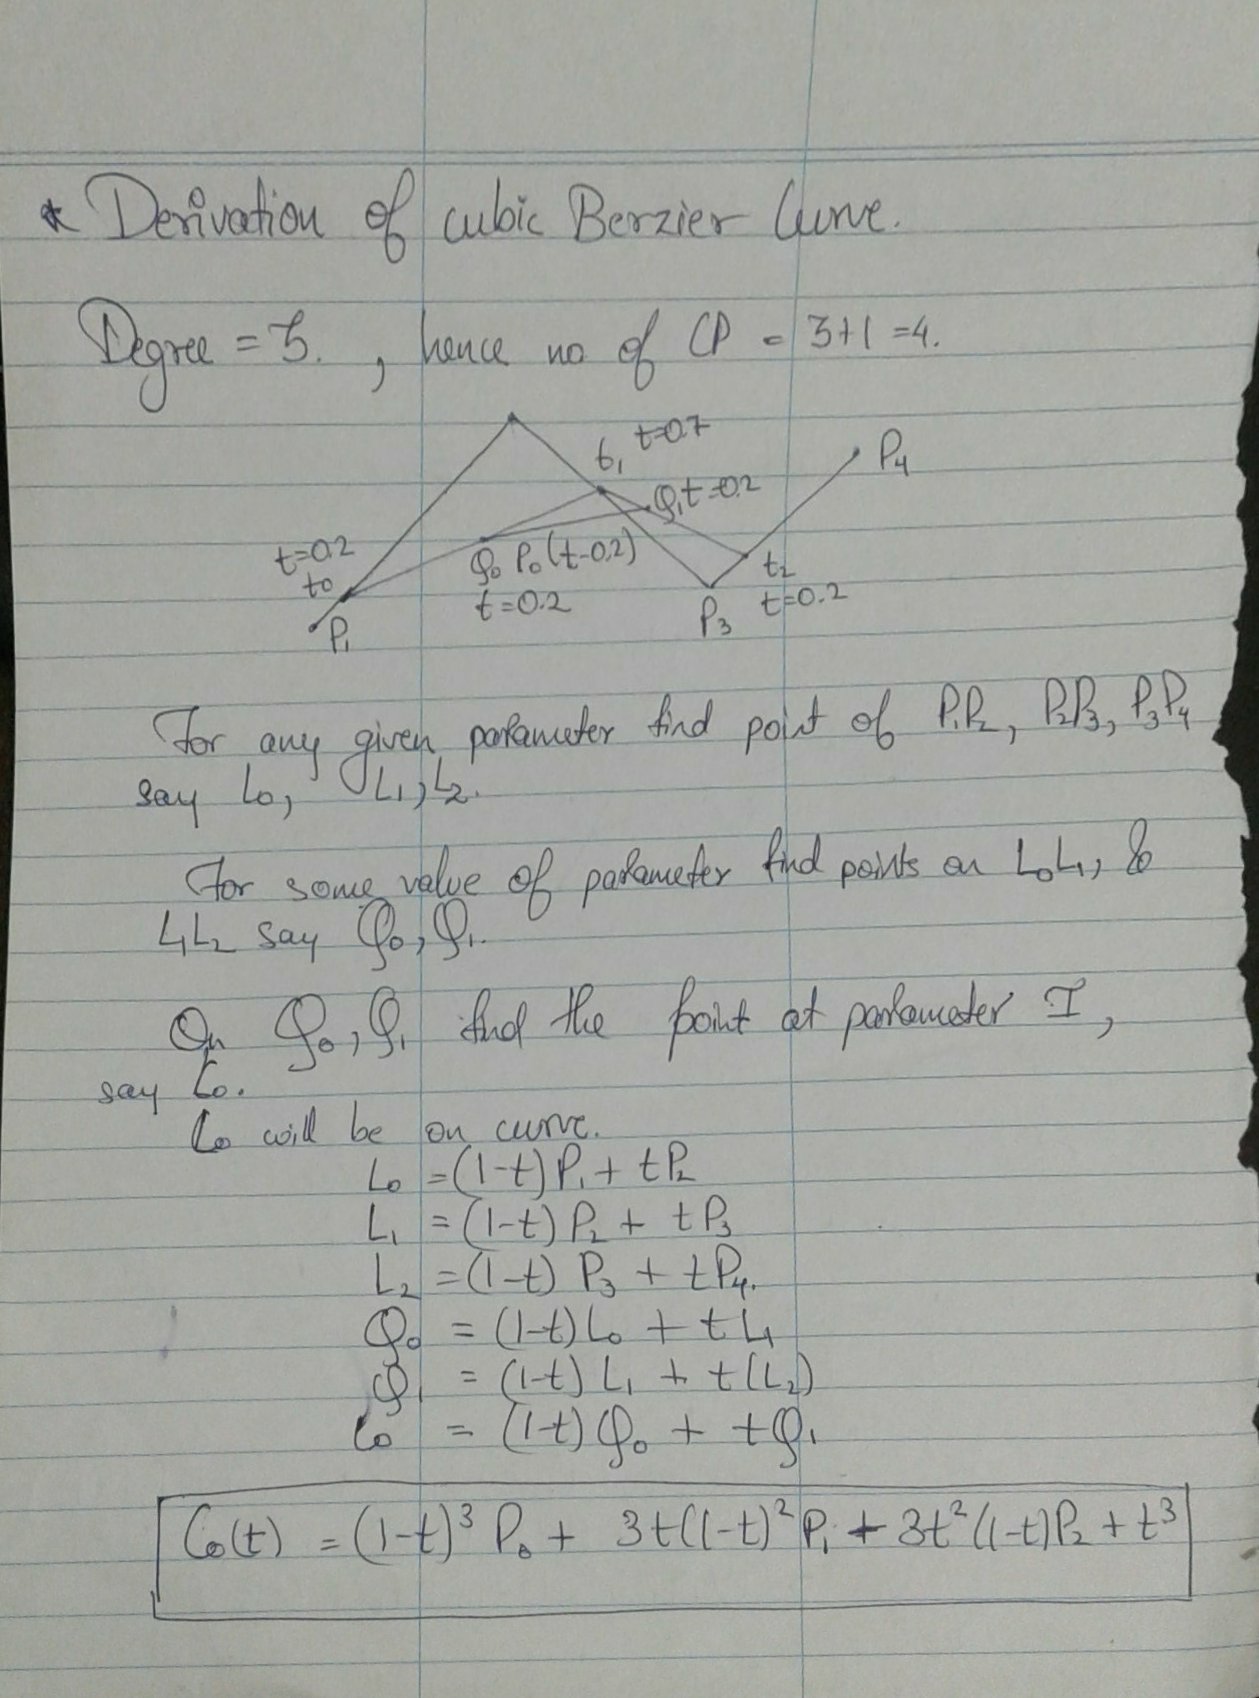 * Derivation of cubic Berzier Curve.
Degree = 3. , hence no of CP = 3+1 =4.
t=0.7
t1
P4
Q1 t=0.2
t=0.2
t0
Q0 P0(t-0.2)
t=0.2
t2
t=0.2
P3
P1
For any given parameter find point of P1P2, P2P3, P3P4
say L0, L1, L2.
For some value of parameter find points on L0L1, &
L1L2 say Q0, Q1.
On Q0, Q1 find the point at parameter I,
say C0.
C0 will be on curve.
L0 = (1-t)P1 + tP2
L1 = (1-t) P2 + tP3
L2 = (1-t) P3 + tP4.
Q0 = (1-t)L0 + tL1
Q1 = (1-t) L1 + t(L2)
C0 = (1-t)Q0 + tQ1
C0(t) = (1-t)³ P0 + 3t(1-t)² P1 + 3t² (1-t)P2 + t³